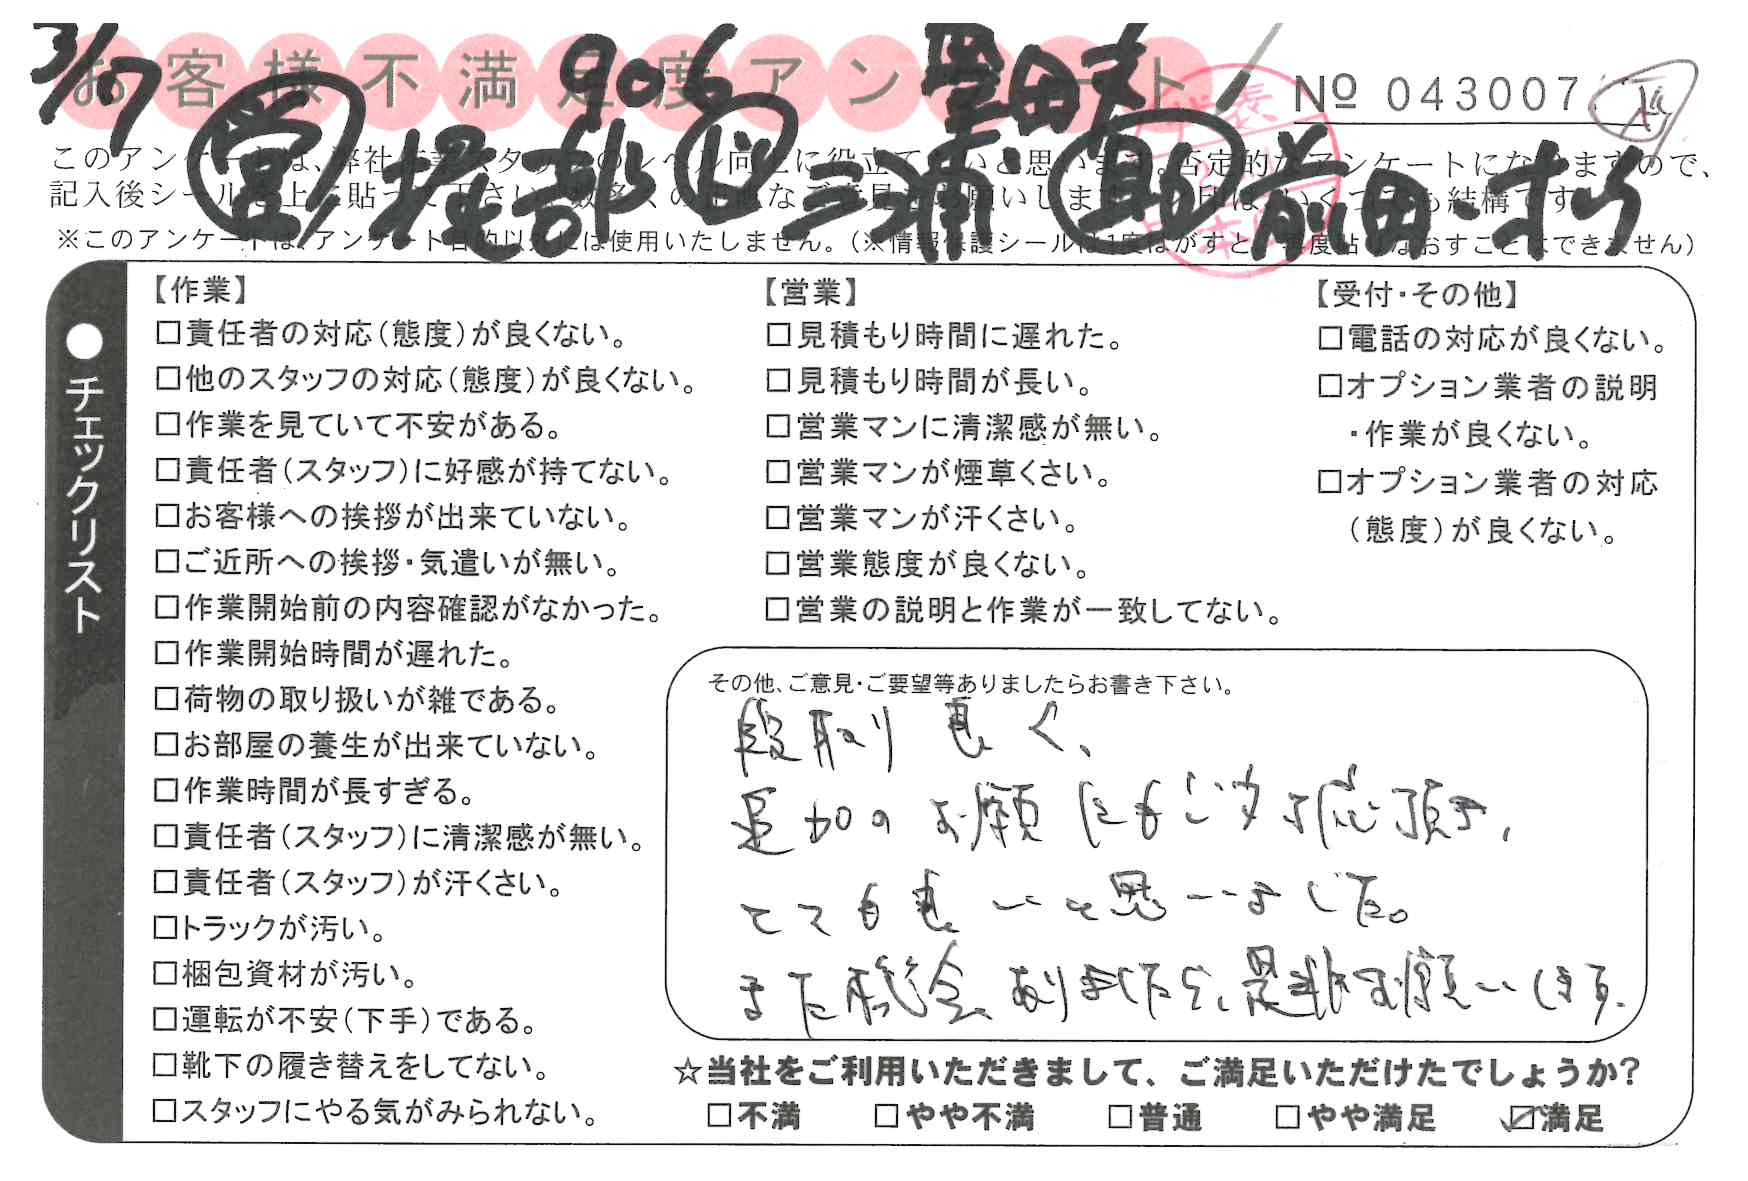 3/17 906 岡田様
お客様不満足度アンケート
№ 043007
営 堀部 心 三浦 助 前田・村
このアンケートは、弊社作業スタッフのレベル向上に役立てたいと思います。否定的なアンケートになりますので、
記入後シールを上に貼って下さい。数多くの正直なご意見をお願いします。レ印はいくつでも結構です。
※このアンケートは、アンケート目的以外には使用いたしません。（※情報保護シールは1度はがすと、再度貼りなおすことはできません）
●チェックリスト
【作業】
□責任者の対応（態度）が良くない。
□他のスタッフの対応（態度）が良くない。
□作業を見ていて不安がある。
□責任者（スタッフ）に好感が持てない。
□お客様への挨拶が出来ていない。
□ご近所への挨拶・気遣いが無い。
□作業開始前の内容確認がなかった。
□作業開始時間が遅れた。
□荷物の取り扱いが雑である。
□お部屋の養生が出来ていない。
□作業時間が長すぎる。
□責任者（スタッフ）に清潔感が無い。
□責任者（スタッフ）が汗くさい。
□トラックが汚い。
□梱包資材が汚い。
□運転が不安（下手）である。
□靴下の履き替えをしてない。
□スタッフにやる気がみられない。
【営業】
□見積もり時間に遅れた。
□見積もり時間が長い。
□営業マンに清潔感が無い。
□営業マンが煙草くさい。
□営業マンが汗くさい。
□営業態度が良くない。
□営業の説明と作業が一致してない。
【受付・その他】
□電話の対応が良くない。
□オプション業者の説明
・作業が良くない。
□オプション業者の対応
（態度）が良くない。
その他、ご意見・ご要望等ありましたらお書き下さい。
段取り良く、
追加のお願いにもご対応頂き、
とても良いと思いました。
また機会ありましたら、是非お願いします。
☆当社をご利用いただきまして、ご満足いただけたでしょうか？
□不満 □やや不満 □普通 □やや満足 ☑満足